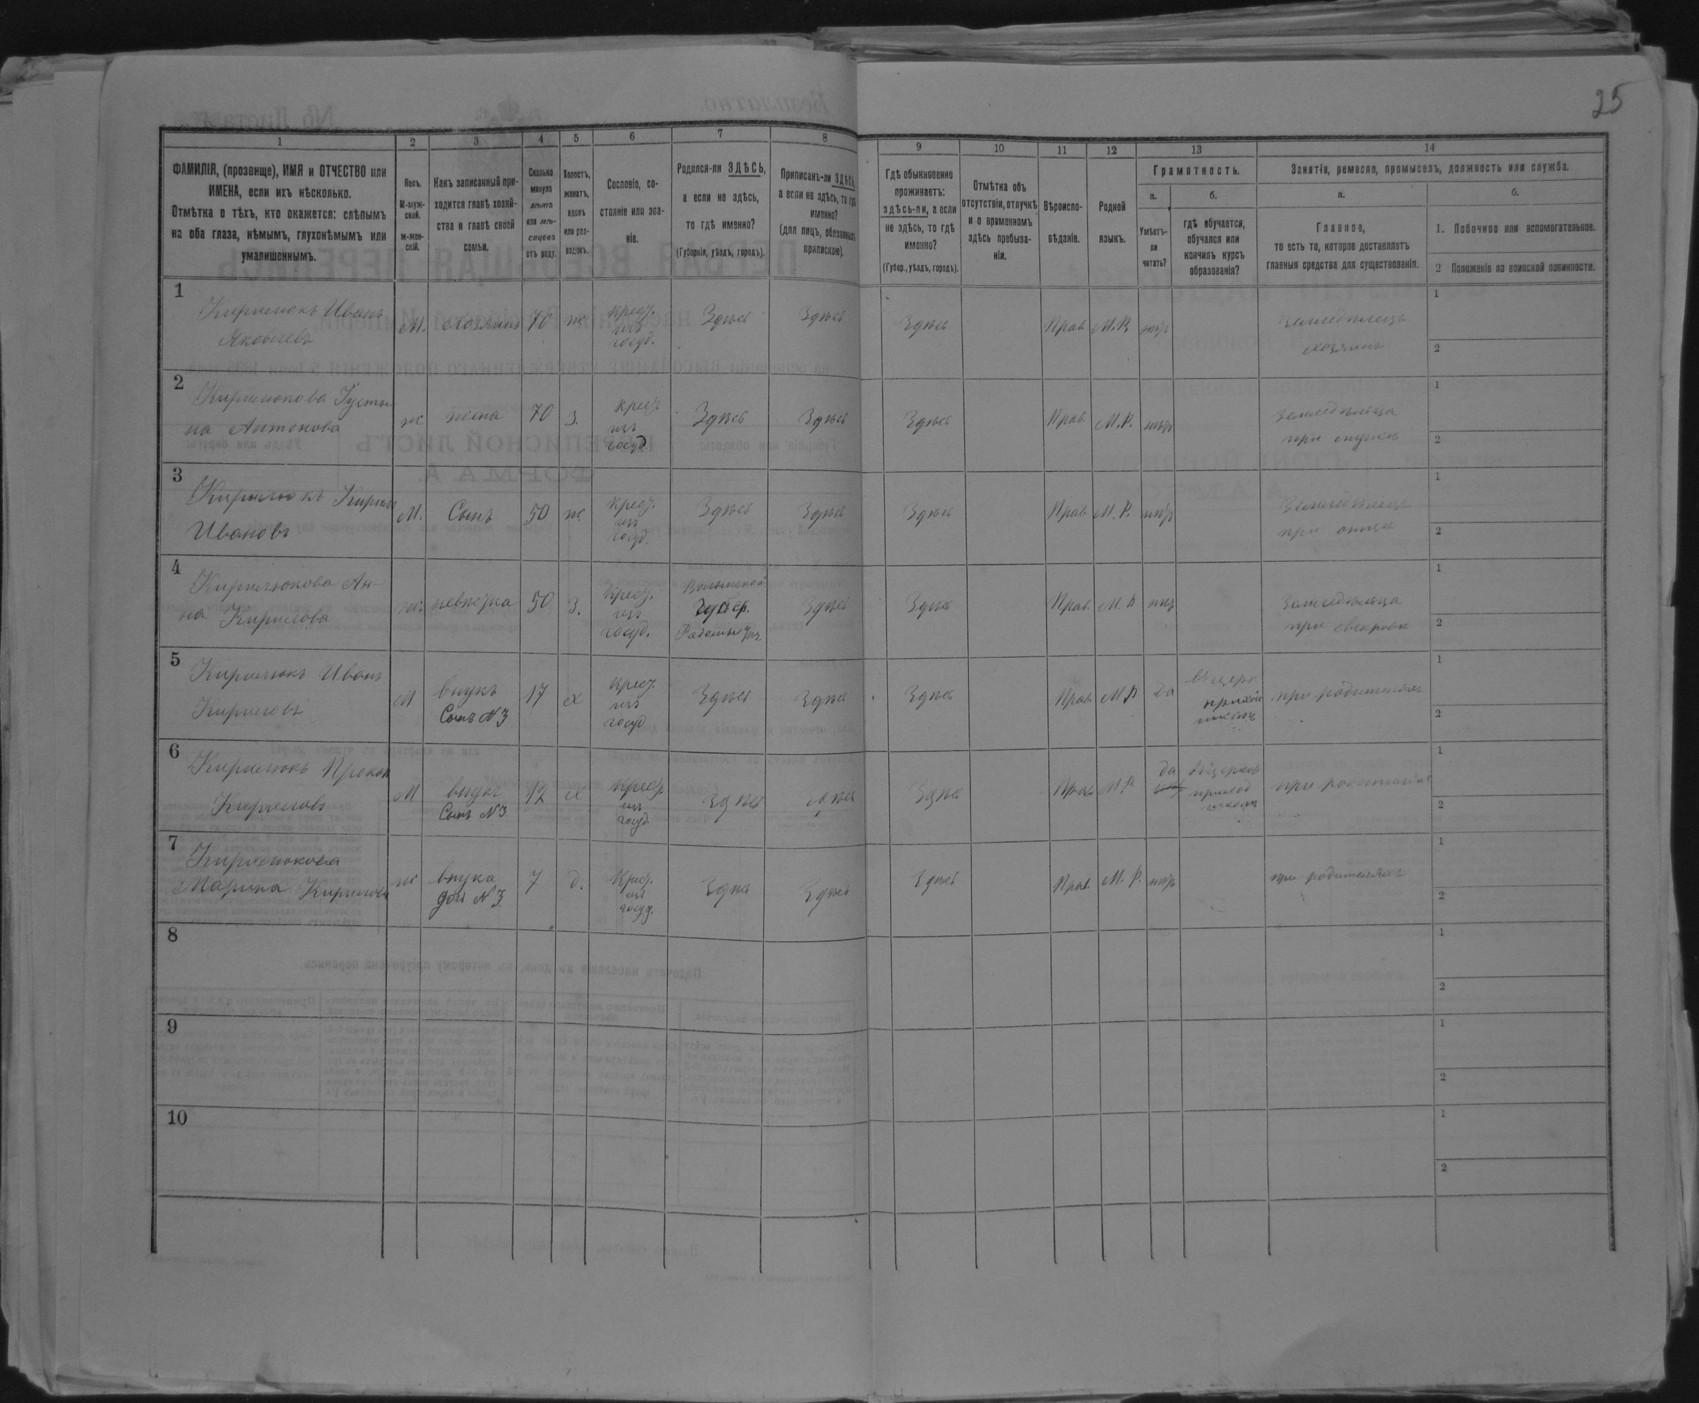 25
1 2 3 4 5 6 7 8 9 10 11 12 13 14
ФАМИЛІЯ, (прозвище), ИМЯ и ОТЧЕСТВО или
ИМЕНА, если ихъ нѣсколько.
Отмѣтка о тѣхъ, кто окажется: слѣпымъ
на оба глаза, нѣмымъ, глухонѣмымъ или
умалишеннымъ.
Полъ.
М-муж-
ской.
ж-жен-
скій.
Какъ записанный при-
ходится главѣ хозяй-
ства и главѣ своей
семьи.
Сколько
минуло
лѣтъ
или мѣ-
сяцевъ
отъ роду.
Холостъ,
женатъ,
вдовъ
или раз-
веденъ.
Сословіе, со-
стояніе или зва-
ніе.
Родился-ли ЗДѢСЬ,
а если не здѣсь,
то гдѣ именно?
(Губернія, уѣздъ, городъ).
Приписанъ-ли ЗДѢСЬ
а если не здѣсь, то гдѣ
именно?
(для лицъ, обязанныхъ
припискою).
Гдѣ обыкновенно
проживаетъ:
здѣсь-ли, а если
не здѣсь, то гдѣ
именно?
(Губер., уѣздъ, городъ).
Отмѣтка объ
отсутствіи, отлучкѣ
и о временномъ
здѣсь пребыва-
ніи.
Вѣроиспо-
вѣданіе.
Родной
языкъ.
Грамотность.
а. б.
Умѣетъ-
ли
читать?
гдѣ обучается,
обучался или
кончилъ курсъ
образованія?
Занятія, ремесло, промыселъ, должность или служба.
а. б.
Главное,
то есть то, которое доставляетъ
главныя средства для существованія.
1. Побочное или вспомогательное.
2 Положеніе по воинской повинности.
1
Кирилюкъ Иванъ
Яковлевъ
М. хозяинъ 70 ж
крест.
изъ
госуд.
Здѣсь Здѣсь Здѣсь Прав. М.Р. нѣтъ
Земледѣлецъ
хозяинъ
1
2
2
Кирилюкова Густы
на Антонова
ж жена 70 з.
крест
изъ
госуд
Здѣсь Здѣсь Здѣсь Прав. М.Р. нѣтъ
Земледѣльца
при мужѣ
1
2
3
Кирилюкъ Кирилъ
Ивановъ
М. Сынъ 50 ж
крест.
изъ
госуд.
Здѣсь Здѣсь Здѣсь Прав М.Р. нѣтъ
Земледѣлецъ
при отцѣ
1
2
4
Кирилюкова Ан-
на Кирилова
ж невѣстка 50 з.
крест.
изъ
госуд.
Волынской
губер.
Здѣсь Здѣсь Прав. М.Р нѣтъ
Земледѣльца
при свекровѣ
1
2
5
Кирилюкъ Иванъ
Кириловъ
М внукъ 17 х
Сынъ №3
крест.
изъ
госуд
Здѣсь Здѣсь Здѣсь Прав. М.Р да
въ церк.
приход
школѣ
при родителяхъ
1
2
6
Кирилюкъ Прокоп
Кириловъ
М внукъ 12 х
Сынъ №3
крест.
изъ
госуд
Здѣсь Здѣсь Здѣсь Прав М.Р. да
въ церков
приход
школѣ
при родителяхъ
1
2
7
Кирилюкова
Марина Кирилова
ж внука 7 д.
доч №3
Крест.
изъ
госуд.
Здѣсь Здѣсь Здѣсь Прав. М.Р. нѣтъ
при родителяхъ
1
2
8
1
2
9
1
2
10
1
2